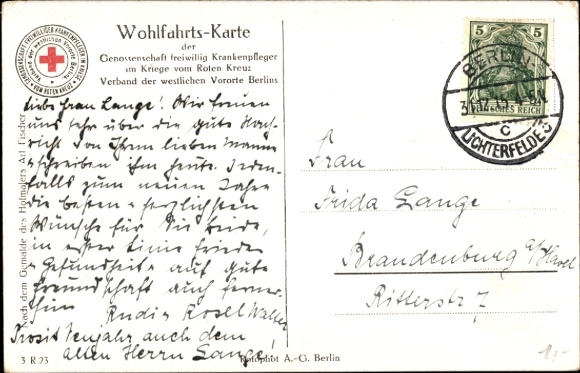 Wohlfahrts-Karte
der
Genossenschaft freiwillig Krankenpfleger
im Kriege vom Roten Kreuz
Verband der westlichen Vororte Berlins
Liebe Frau Lange! Wir freuen
uns sehr über die gute Nach-
richt von Ihrem lieben Manne
+ schreiben ihm heute. Jeden-
falls zum neuen Jahre
die besten + herzlichsten
Wünsche für Sie beide,
in erster Linie Frieden
+ Gesundheit + auf gute
Freundschaft auch ferner-
hin
Rudi + Rosel Walter
Prosit Neujahr auch dem
alten Herrn Lange!
Nach dem Gemälde des Hofmalers Art Fischer
3 R 23
Rotophot A.-G. Berlin
5 5
DEUTSCHES REICH
BERLIN-
C
LICHTERFELDE 3
Frau
Frida Lange
Brandenburg a/Havel
Ritterstr 7
1,-